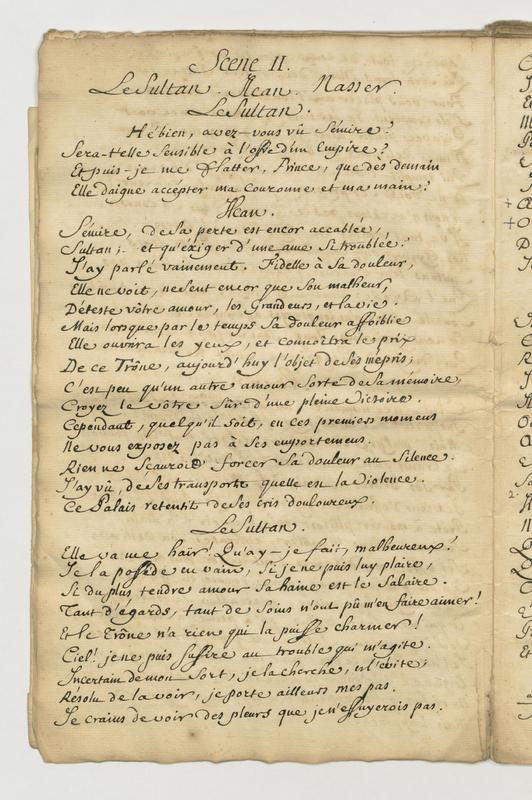 Scene II.
Le Sultan. Hean. Nasser.
Le Sultan.
Hé bien, avez-vous vû Sémire?
Sera-t'elle sensible à l'offre d'un Empire?
Et puis-je me flatter, Prince, que dès demain
Elle daigne accepter ma couronne et ma main?
Hean.
Sémire, de sa perte est encor accablée,
Sultan; et qu'éxiger d'une ame si troublée?
J'ay parlé vainement. Fidelle à sa douleur,
Elle ne voit, ne sent encor que son malheur,
Déteste vôtre amour, les grandeurs, et la vie.
Mais lorsque par le temps sa douleur affoiblie
Elle ouvrira les yeux, et connoîtra le prix
De ce Trône, aujourd'huy l'objet de ses mépris;
C'est peu qu'un autre amour sorte de sa mémoire,
Croyez le vôtre sûr d'une pleine victoire.
Cependant, quelqu'il soit, en ces premiers momens
Ne vous exposez pas à ses emportemens.
Rien ne sçauroit forcer sa douleur au silence.
J'ay vû, de ses transports quelle est la violence.
Ce Palais retentit de ses cris douloureux.
Le Sultan.
Elle va me haïr! Qu'ay-je fait, malheureux!
Je la possède en vain, si je ne puis luy plaire,
Si du plus tendre amour sa haine est le salaire.
Tant d'égards, tant de soins n'ont pû m'en faire aimer!
Et le Trône n'a rien qui la puisse charmer!
Ciel! je ne puis suffire au trouble qui m'agite.
Incertain de mon sort, je la cherche, et l'évite;
Résolu de la voir, je porte ailleurs mes pas.
Je crains de voir des pleurs que je n'essuyerois pas.